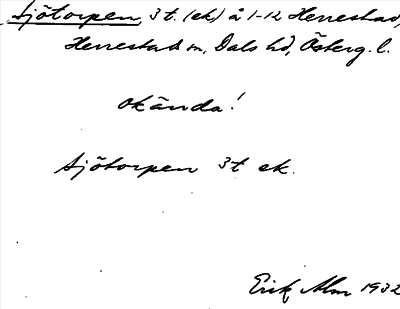 Sjötorpen 3 t. (ek) å 1-12 Herrestad,
Herrestads sn, Dals hd, Österg. l.
okända!
Sjötorpen 3 t ek.
Erik Alm 1932